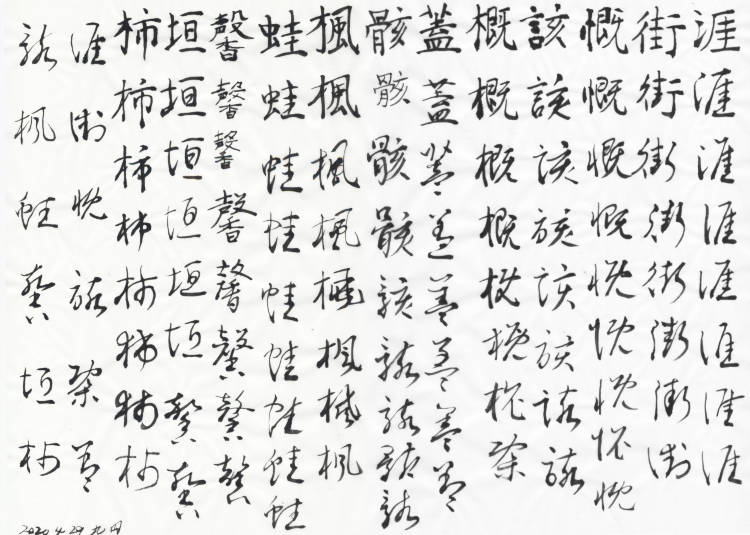 涯涯涯涯涯涯涯涯
街街街街街街街街
慨慨慨慨慨慨慨慨慨
該該該該該該該該
概概概概概概概概
蓋蓋蓋蓋蓋蓋蓋蓋
骸骸骸骸骸骸骸骸骸
楓楓楓楓楓楓楓楓
蛙蛙蛙蛙蛙蛙蛙蛙蛙
馨馨馨馨馨馨馨馨
垣垣垣垣垣垣馨馨
柿柿柿柿柿柿柿柿
涯街慨該概蓋
骸楓蛙馨垣柿
2020.4.29